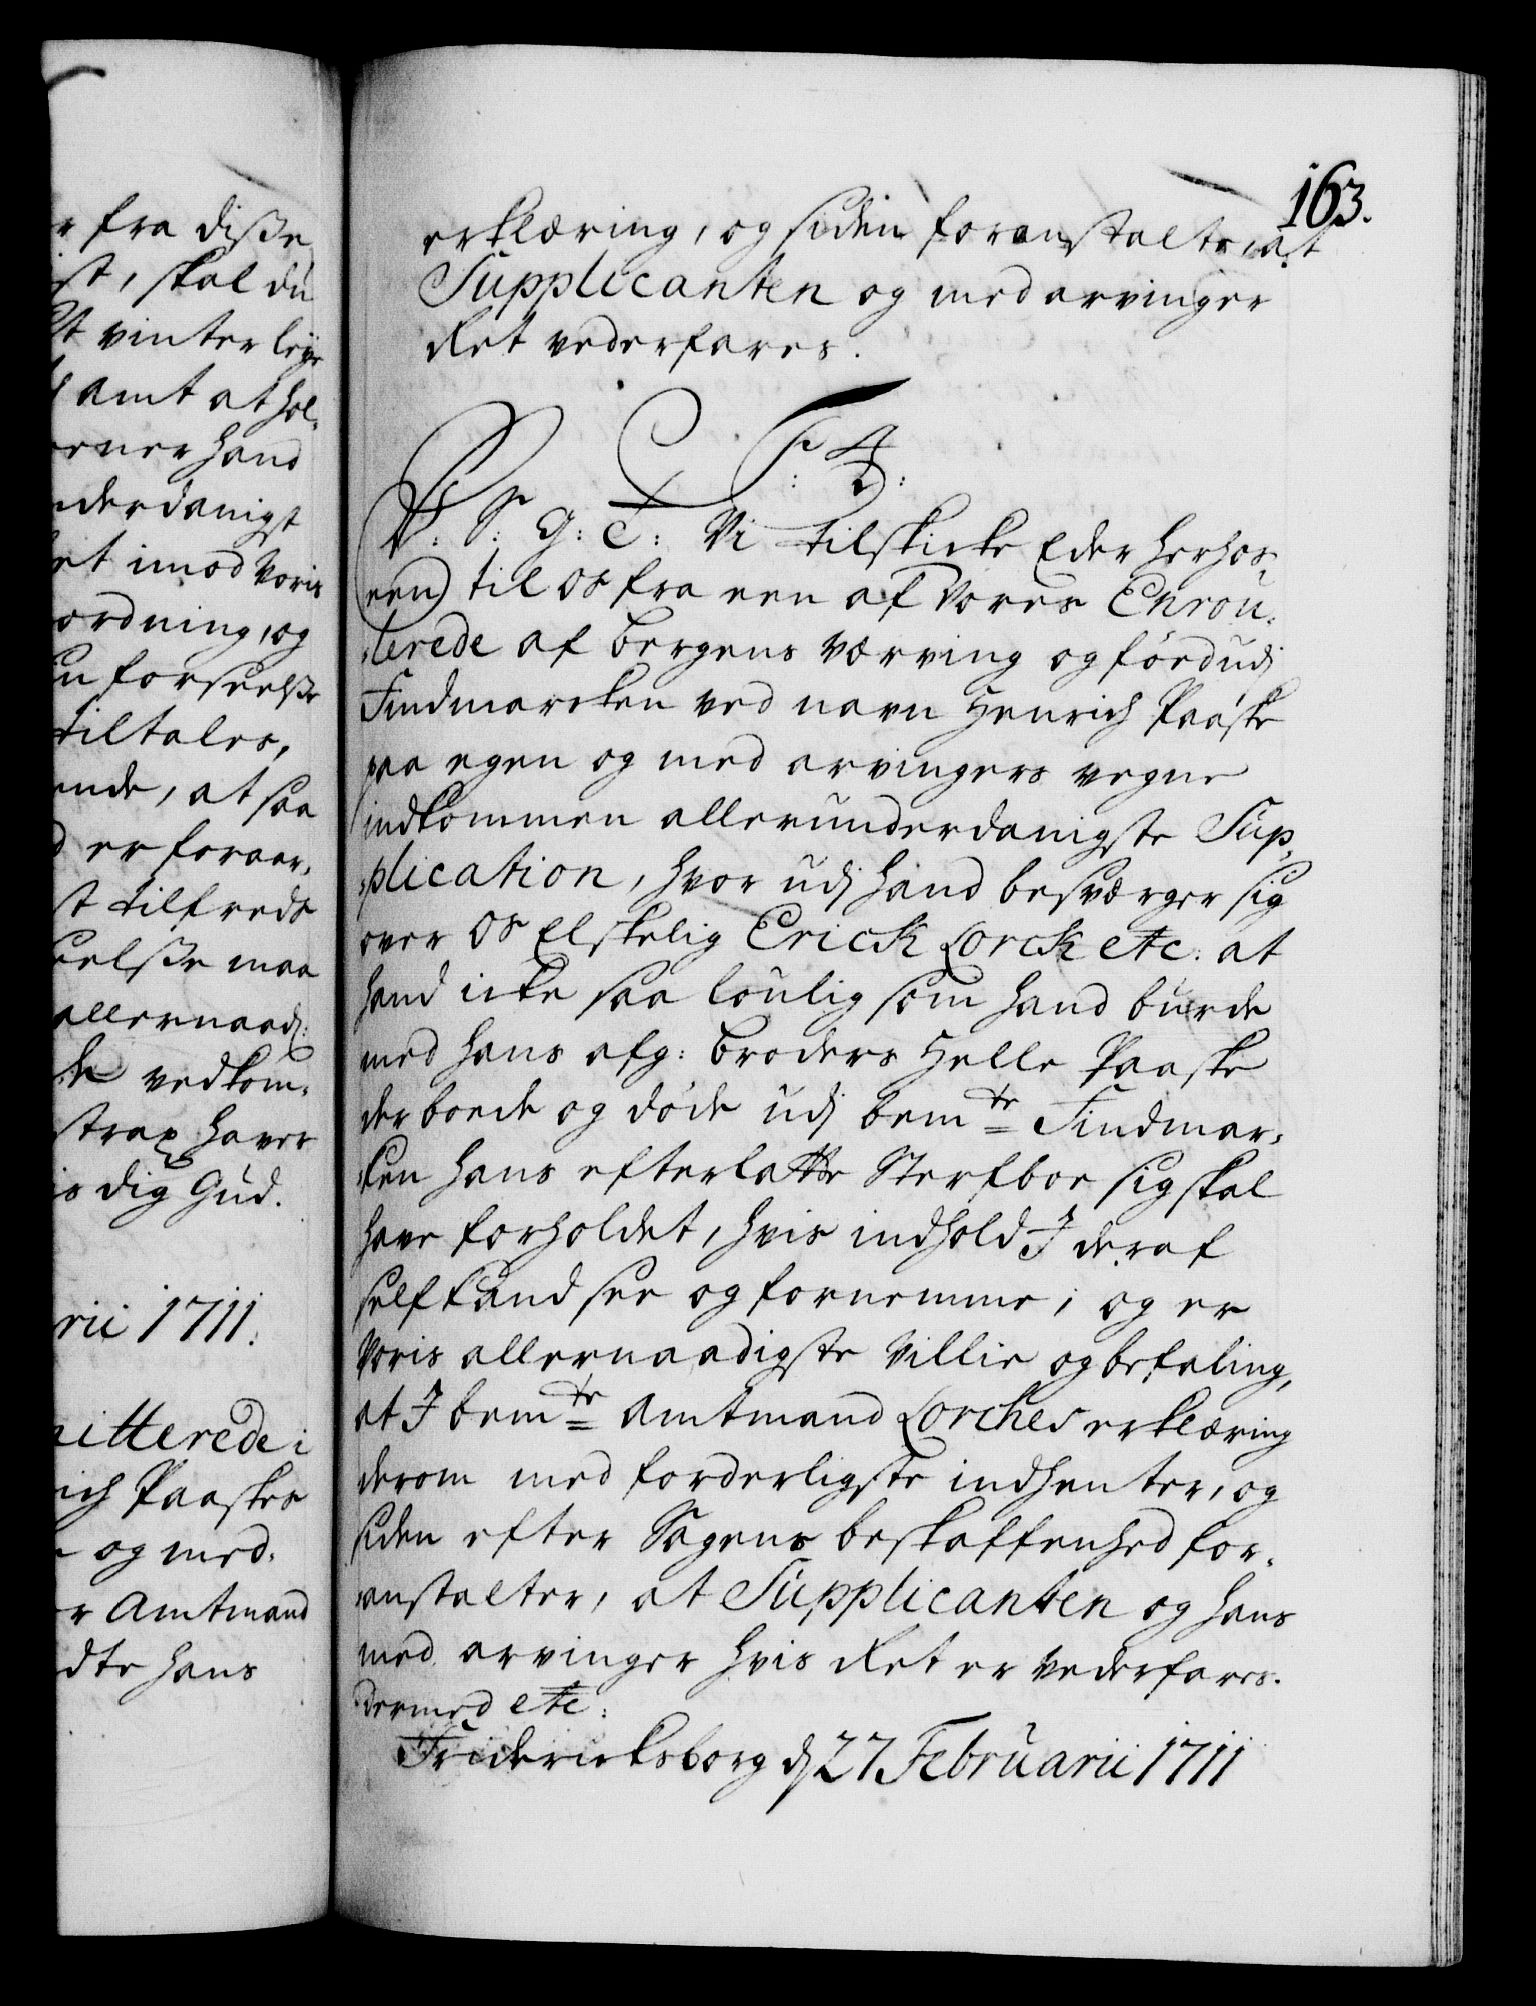 r fra diße
ist, skal du
vinter leye
Amt at hol-
erner Hand
nderdanigst
et imod Voris
ordning, og
en forseelße
tiltales,
ende, at saa
d er foraar,
st tilfreds
eelße maa
allernaad:
vedkom-
strax haver
is dig Gud.
rii 1711.
nitterede i
rich Paaskes
og med-
r Amtmand
dte hans
163.
erklæring, og siden foranstalte, at
Supplicanten og medarvinger
Ret vederfares.
F 4
V: S: G: T: Vi tilskicke Eder herhos
een til os fra een af Vores Enrou-
lerede af Bergens værving og föed udj
Findmarcken ved navn Henrich Paaske
paa egen og med arvingers vegne
indkommen allerunderdanigste Sup-
plication, hvor udj hand besværger sig
over os Elskelig Erick Lorck etc: at
hand icke saa loulig som hand burde
med hans afg: Broders Helle Paaske
der boede og döde udj bem.te Findmar-
ken hans efterlatte Sterfboe sig skal
have forholdet, hvis indhold I deraf
self kand see og fornemme; og er
Voris allernaadigste Villie og befaling,
at I bem.te Amtmand Lorches erklæring
derom med forderligste indhenter, og
siden efter Sagens beskaffenhed for-
anstalter, at Supplicanten og hans
med arvinger hvis Ret er vederfares.
Dermed etc:
Friderichsborg d 27 Februarii 1711